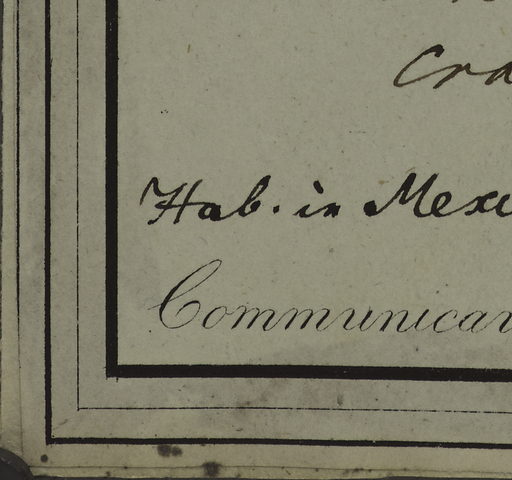 Cra
Hab. in Mexi
Communicav